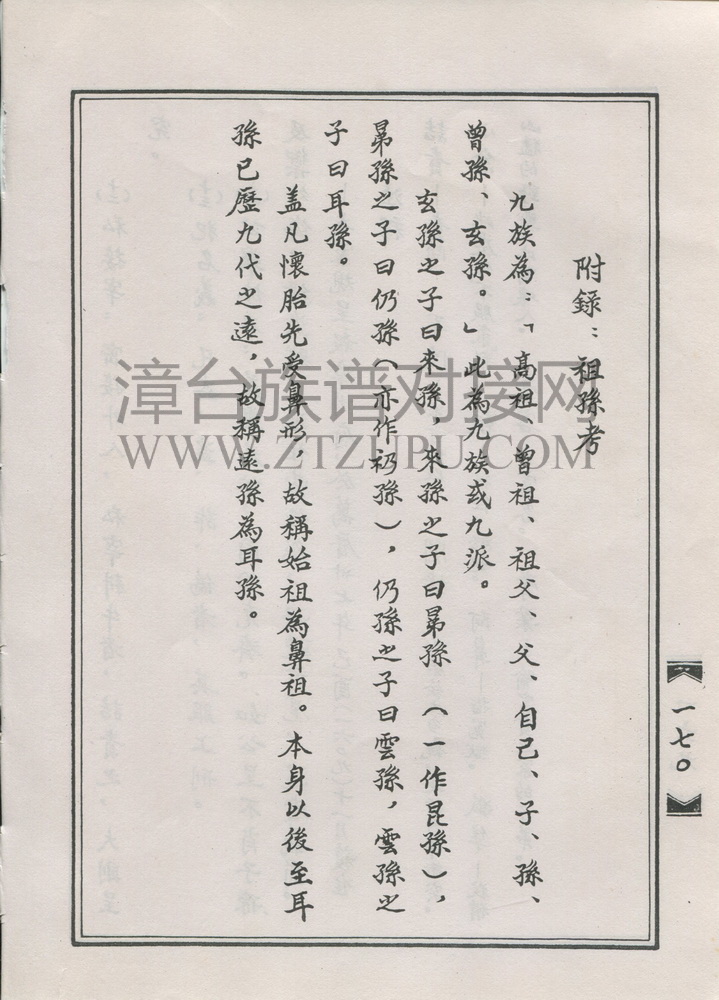 附錄：祖孫考
九族為：「高祖、曾祖、祖父、父、自己、子、孫、
曾孫、玄孫。」此為九族或九派。
玄孫之子曰來孫，來孫之子曰晜孫（一作昆孫），
晜孫之子曰仍孫（亦作礽孫），仍孫之子曰雲孫，雲孫之
子曰耳孫。
蓋凡懷胎先受鼻形，故稱始祖為鼻祖。本身以後至耳
孫已歷九代之遠，故稱遠孫為耳孫。
一七〇
漳台族谱对接网
WWW.ZTZUPU.COM